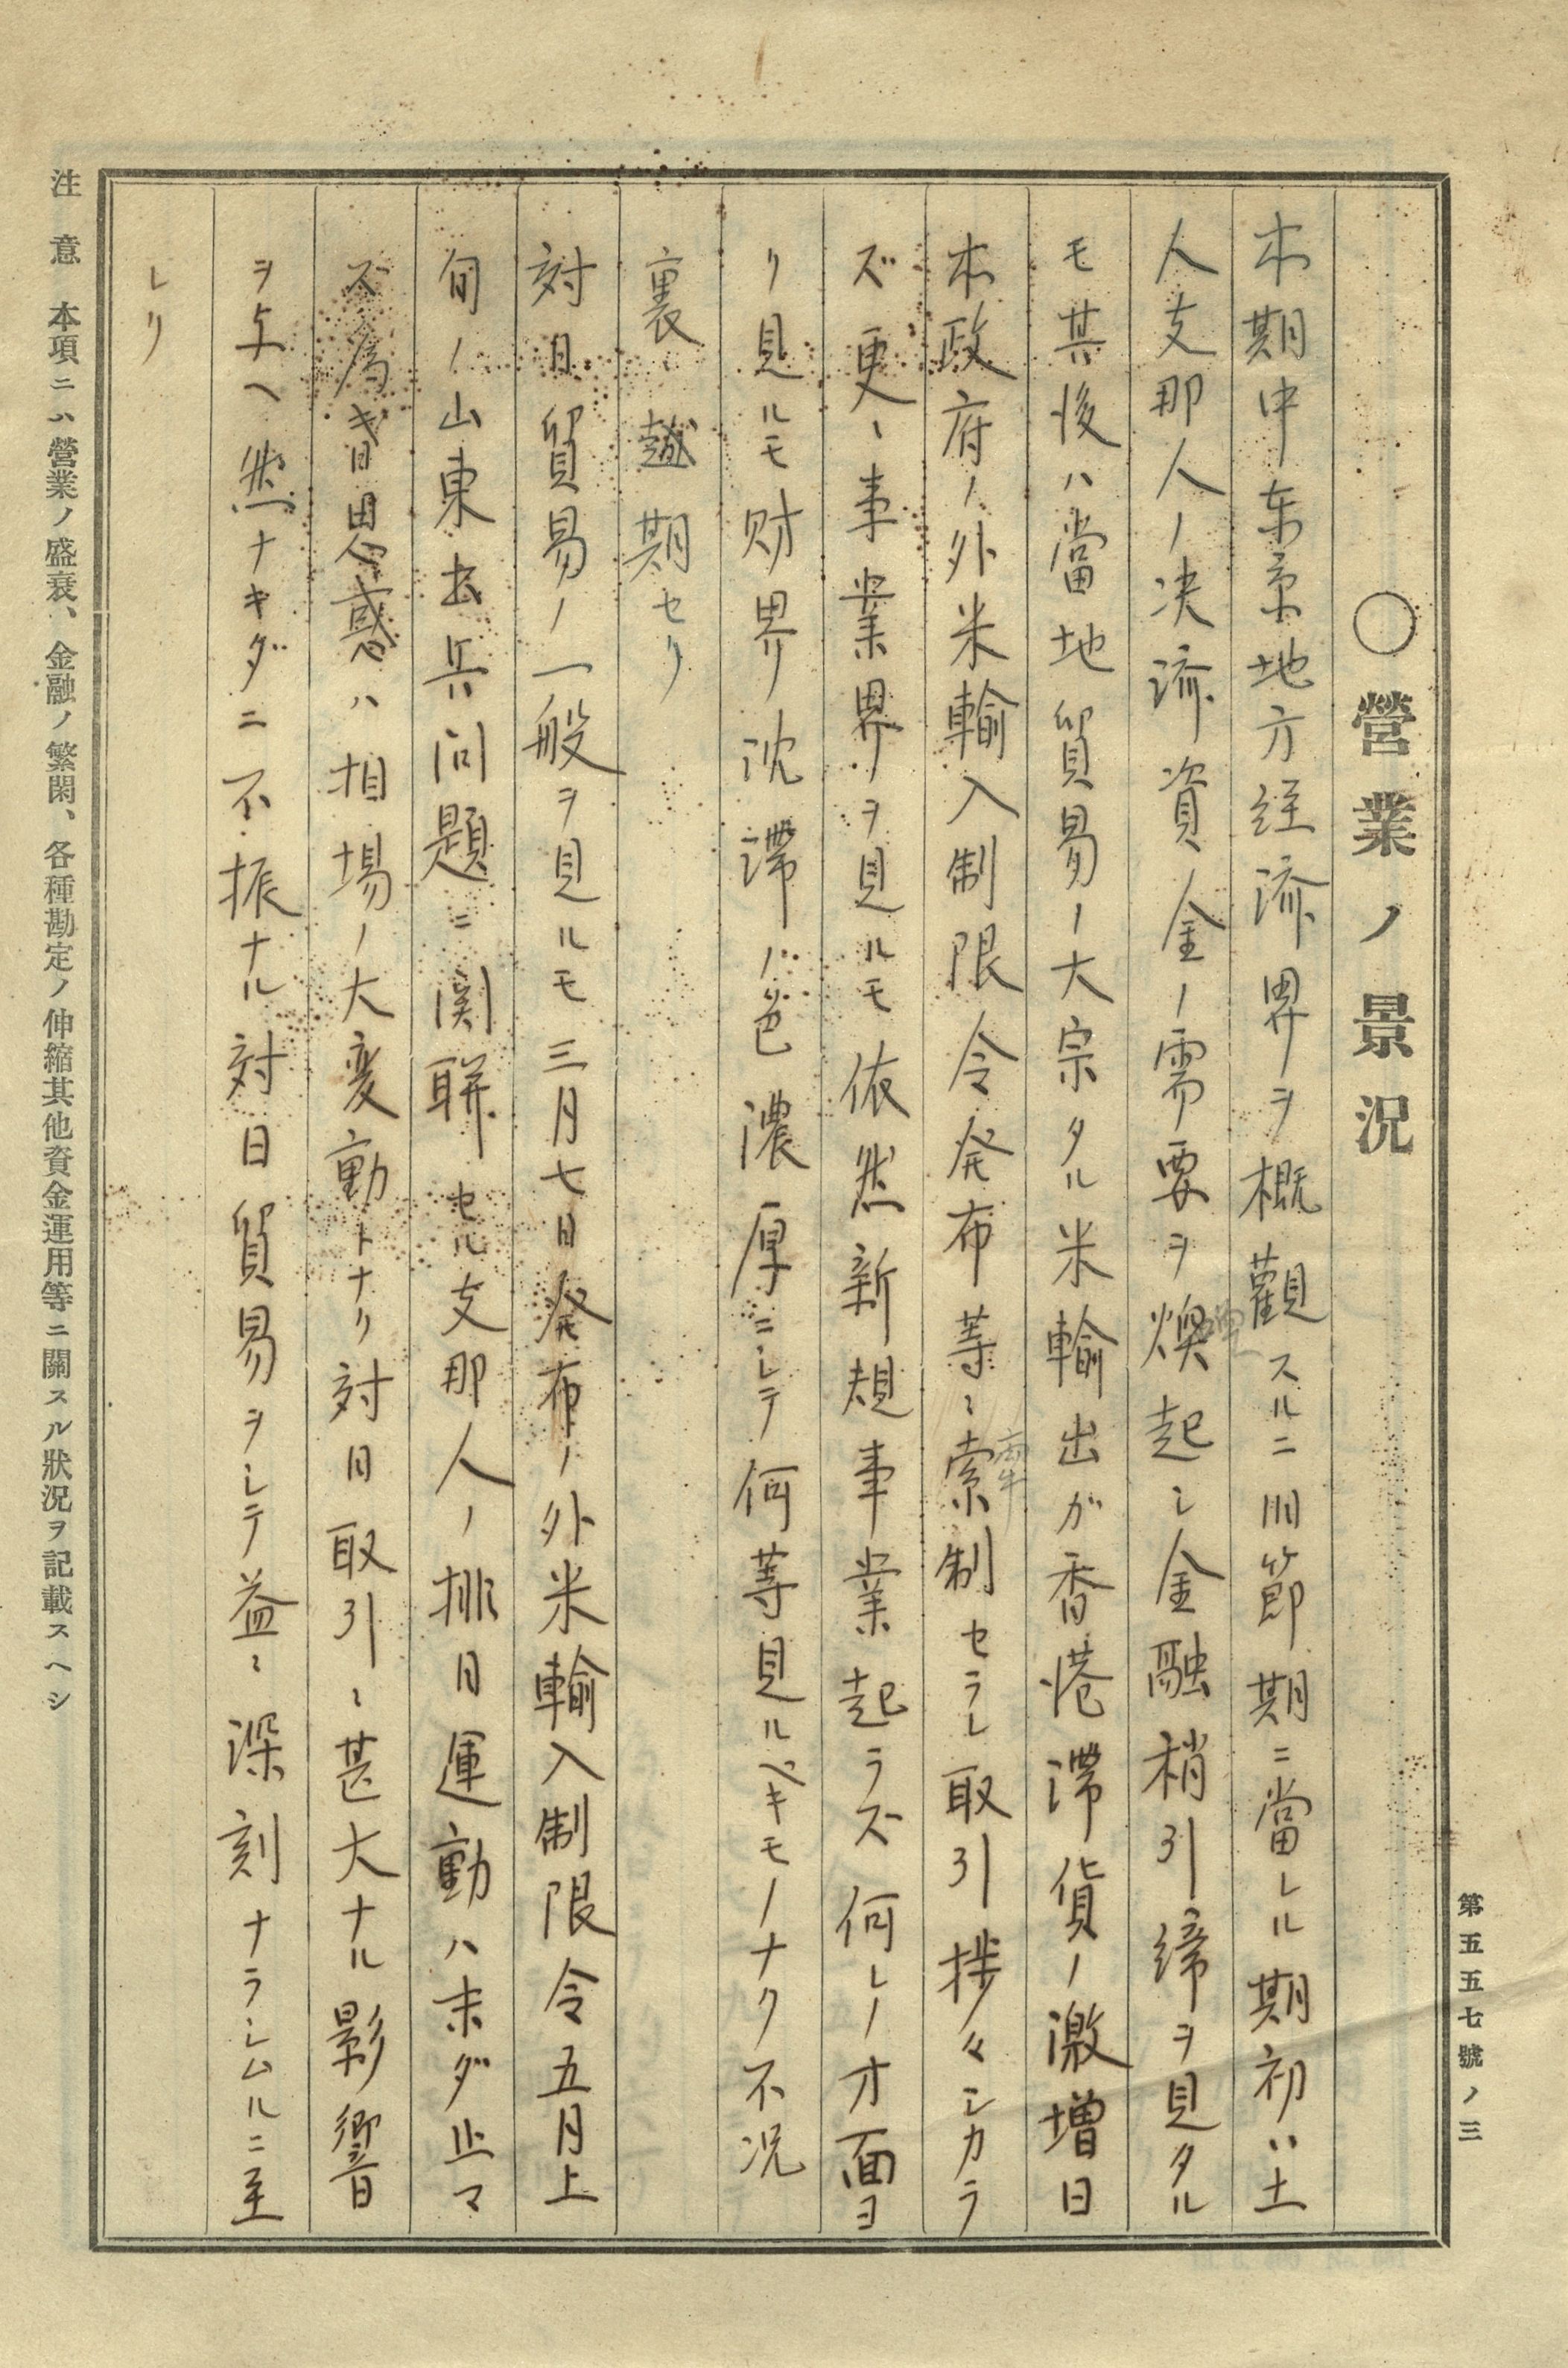 第五五七號ノ三
〇營業ノ景況
本期中东京地方経済界ヲ概観スルニ旧節期ニ當レル期初ハ土
人支那人ノ決済資金ノ需要ヲ煥起シ金融稍引締ヲ見タル
モ其後ハ當地貿易ノ大宗タル米輸出ガ香港滞貨ノ激増日
本政府ノ外米輸入制限令発布等ニ索制セラレ取引捗々シカラ
牽
ズ更ニ事業界ヲ見ルモ依然新規事業起ラズ何レノ方面ヨ
リ見ルモ財界ノ沈滞ハ色濃厚ニシテ何等見ルベキモノナク不況
裏ニ越期セリ
対日貿易ノ一般ヲ見ルモ三月七日発布ノ外米輸入制限令五月上
旬ノ山東出兵问題ニ関聯セル支那人ノ排日運動ハ未ダ止マ
ズ為替思惑ハ相場ノ大変動トナリ対日取引ニ甚大ナル影響
ヲ与ヘ然ナキダニ不振ナル対日貿易ヲシテ益々深刻ナラシムルニ至
レリ
注意 本項ニハ營業ノ盛衰、金融ノ繁閑、各種勘定ノ伸縮其他資金運用等ニ關スル狀況ヲ記載スヘシ